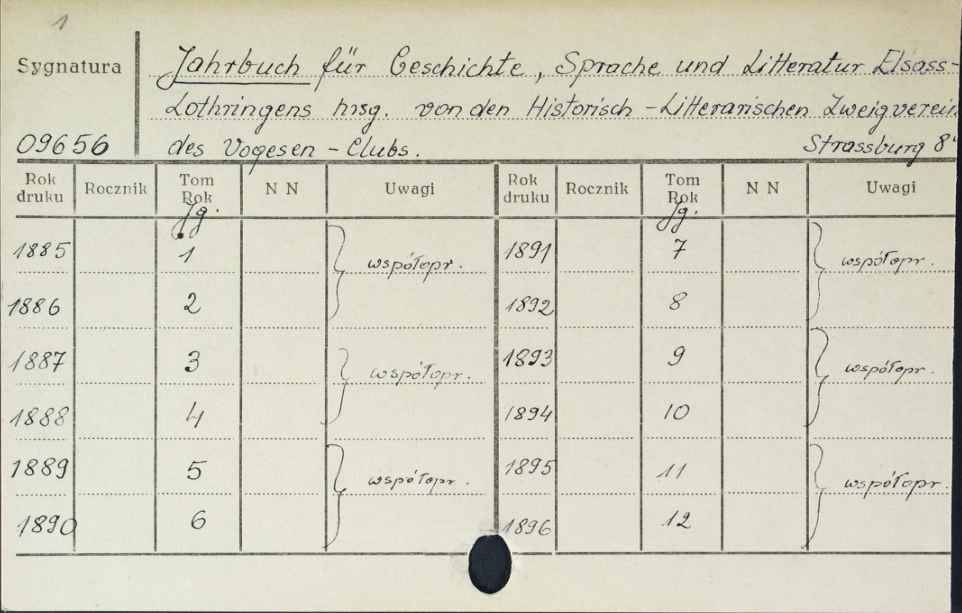 1
Sygnatura
Jahrbuch für Geschichte, Sprache und Litteratur Elsass-
Lothringens hrsg. von den Historisch-Litterarischen Zweigverein
09656 des Vogesen-Clubs. Strassburg 8°
Rok druku Rocznik Tom Rok NN Uwagi Rok druku Rocznik Tom Rok NN Uwagi
Jg. Jg.
1885 1 współopr. 1891 7 współopr.
1886 2 1892 8
1887 3 współopr. 1893 9 współopr.
1888 4 1894 10
1889 5 współopr. 1895 11 współopr.
1890 6 1896 12